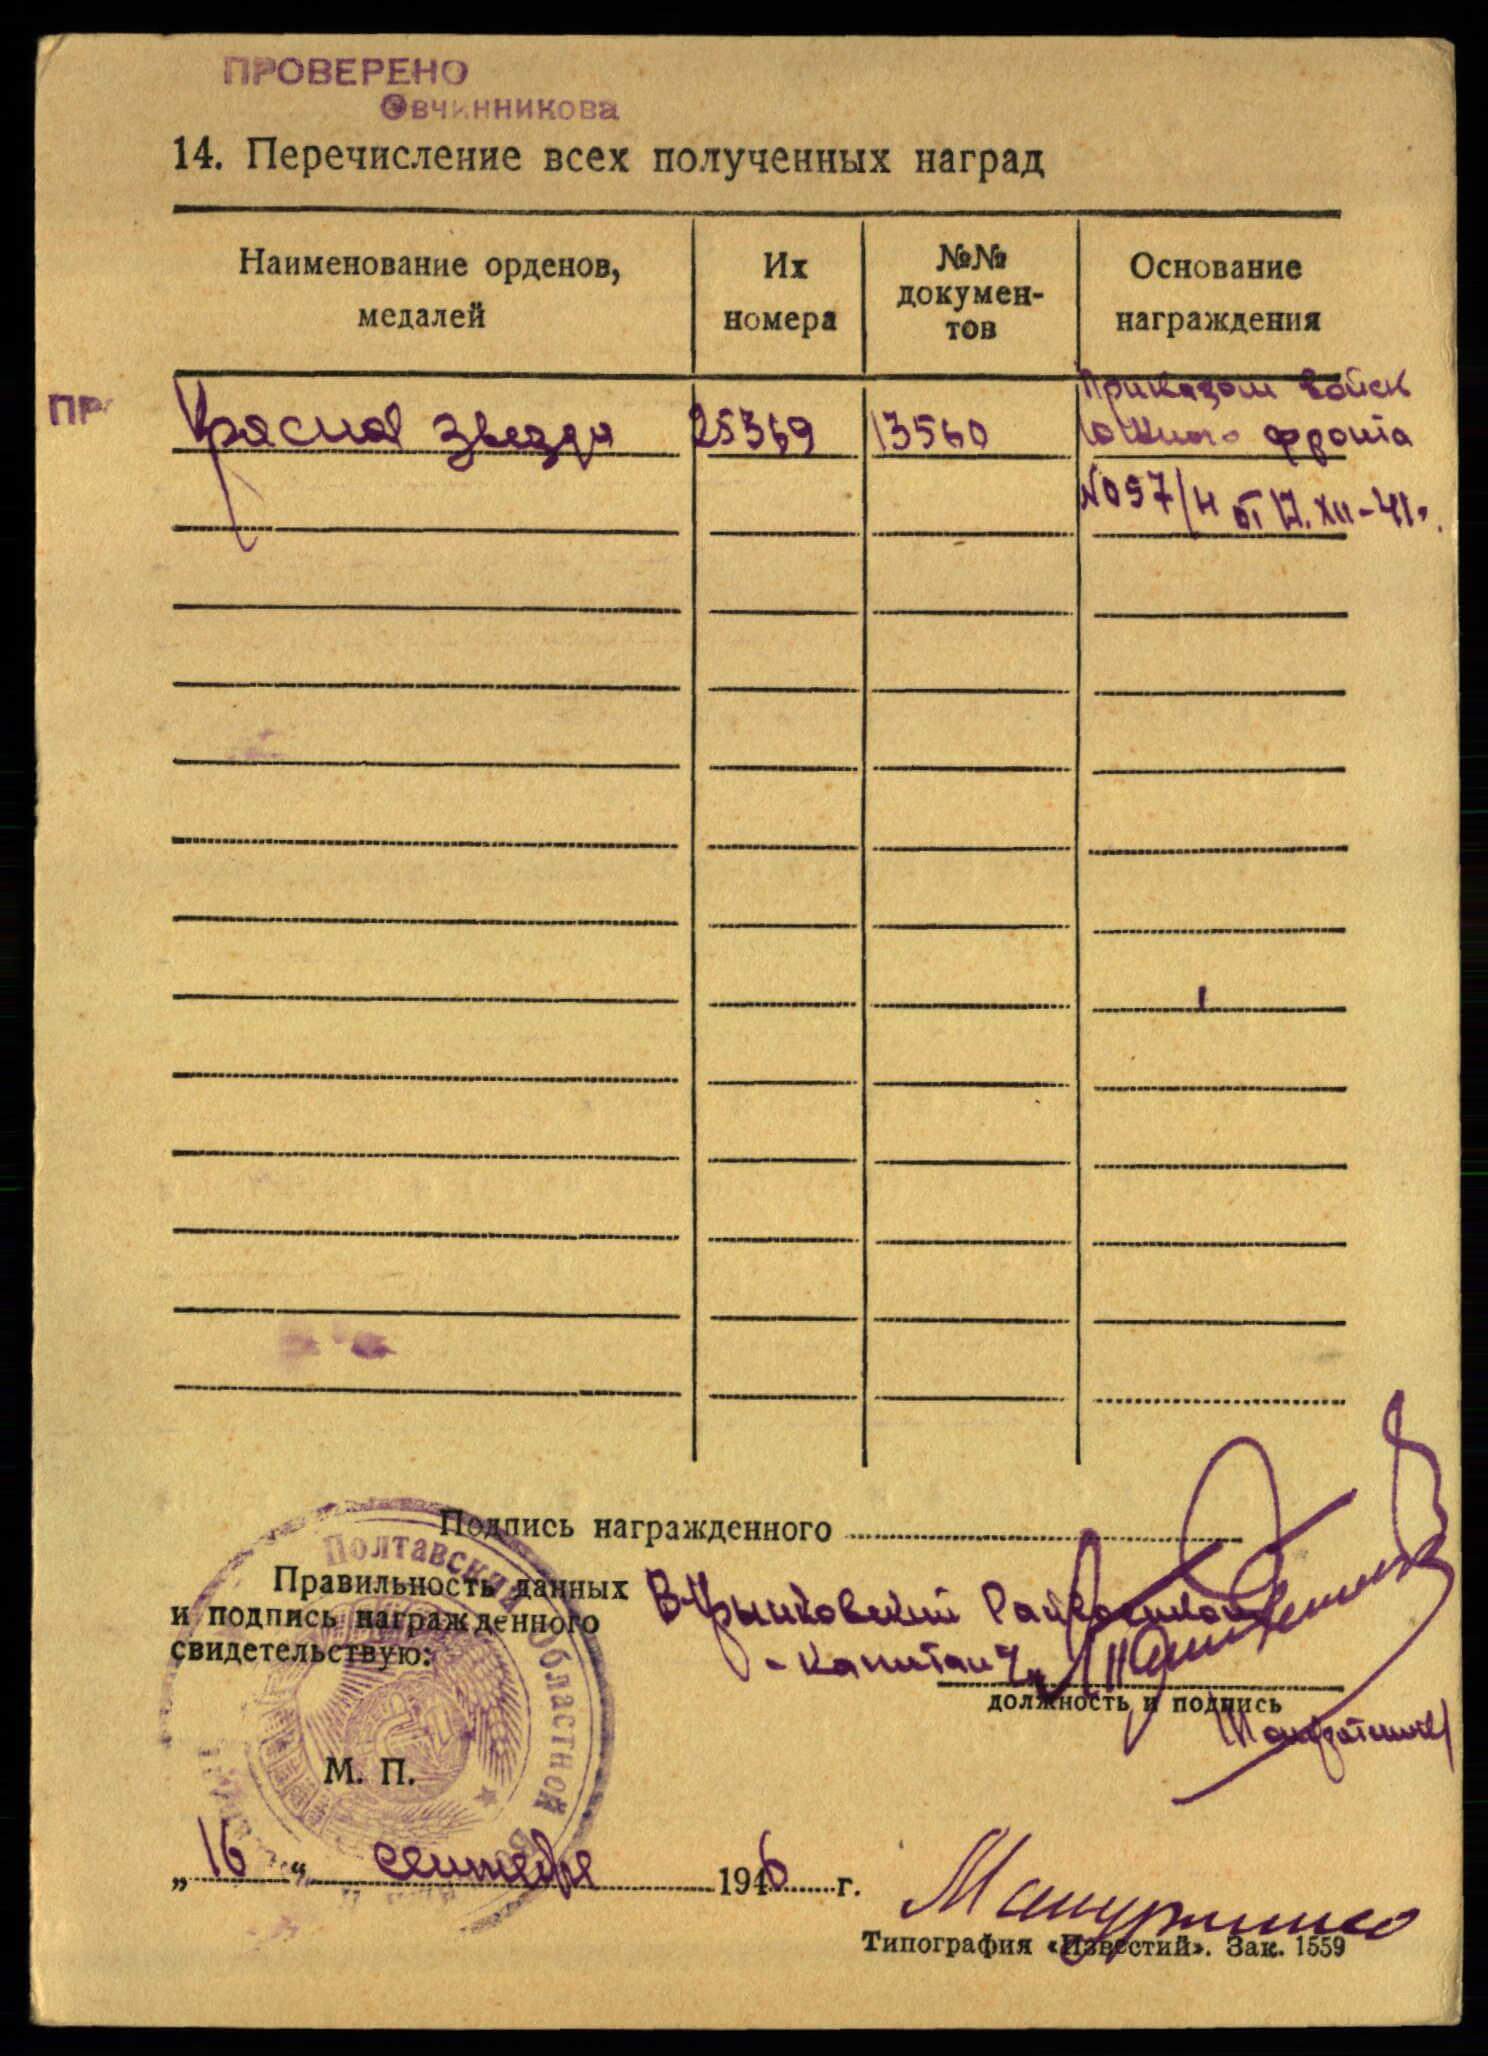 ПРОВЕРЕНО
Овчинникова
14. Перечисление всех полученных наград
Наименование орденов,
медалей
Их
номера
№№
докумен-
тов
Основание
награждения
ПР
Красная звезда
25369
13560
Приказом войск
Южного фронта
№097/н от 17.XII-41г.
Подпись награжденного
Правильность данных
и подпись награжденного
свидетельствую:
Полтавский Областной
В-Крынковский Райвоенком
- Капитан
должность и подпись
М. П.
„16“ сентября 1946 г.
Типография «Известий». Зак. 1559